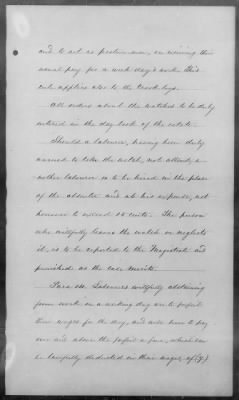 and to act as policemen, receiving their
usual pay for a week day's work. This
rule applies also to the crook-boys.
All orders about the watches to be duly
entered in the day book of the estate.
Should a labourer, having been duly
warned to take the watch, not attend, a-
nother labourer is to be hired in the place
of the absentee and at his expense, not
however to exceed 15 cents. The person
who willfully leaves the watch or neglects
it, is to be reported to the Magistrate and
punished as the case merits.
Para III. Labourers willfully abstaining
from work on a working day are to forfeit
their wages for the day, and will have to pay
over and above the forfeit a fine, which can
be lawfully deducted in their wages, of (7)